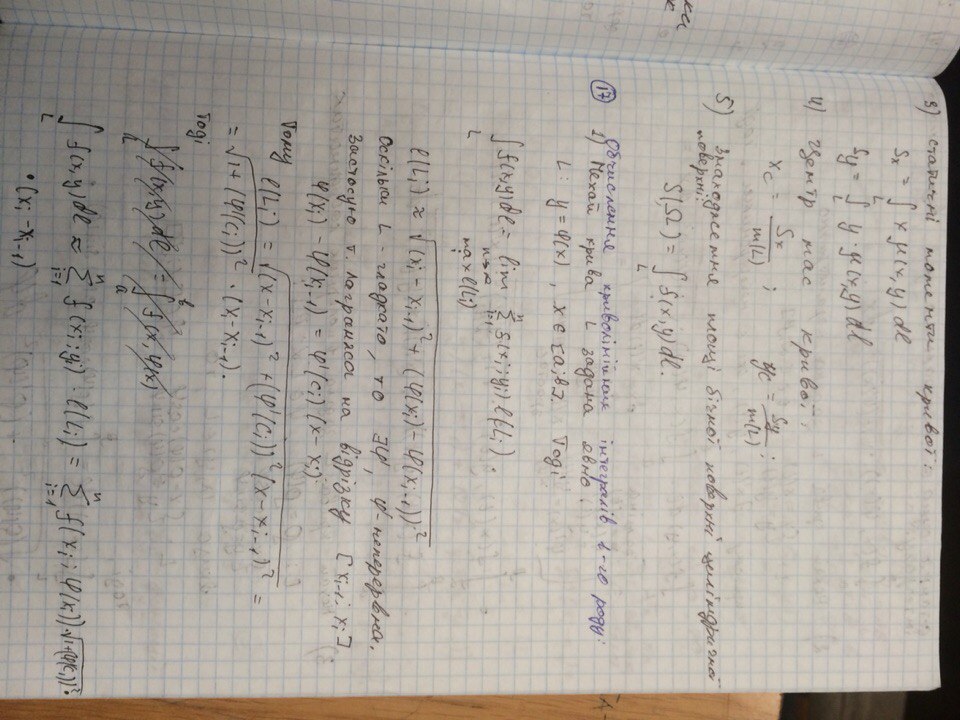 3) статичні моменти кривої:
Sx = ∫L x μ(x,y) dl
Sy = ∫L y · μ(x,y) dl
4) Центр мас кривої:
xc = Sx / m(L) ; yc = Sy / m(L) ;
5) Знаходження площі бічної поверхні циліндричної
поверхні:
S(Ω) = ∫L f(x,y) dl.
17 Обчислення криволінійних інтегралів 1-го роду:
1) Нехай крива L задана явно.
L: y = φ(x), x ∈ [a;b]. Тоді
∫L f(x,y) dl = lim n→∞ max i l(Li) Σ i=1 n f(xi; yi) l(Li).
l(Li) ≈ √((xi - xi-1)² + (φ(xi) - φ(xi-1))²)
Оскільки L - гладка, то ∃φ', φ' - неперервна.
Застосую т. Лагранжа на відрізку [xi-1; xi]
φ(xi) - φ(xi-1) = φ'(ci)(x - xi)
Тому
l(Li) = √((x - xi-1)² + (φ'(ci))² (x - xi-1)²) =
= √(1 + (φ'(ci))²) · (xi - xi-1).
Тоді
∫L f(x,y) dl = ∫a b f(x, φ(x)
∫L f(x,y) dl ≈ Σ i=1 n f(xi; yi) · l(Li) = Σ i=1 n f(xi; φ(xi)) · √(1 + (φ'(ci))²) ·
· (xi - xi-1)